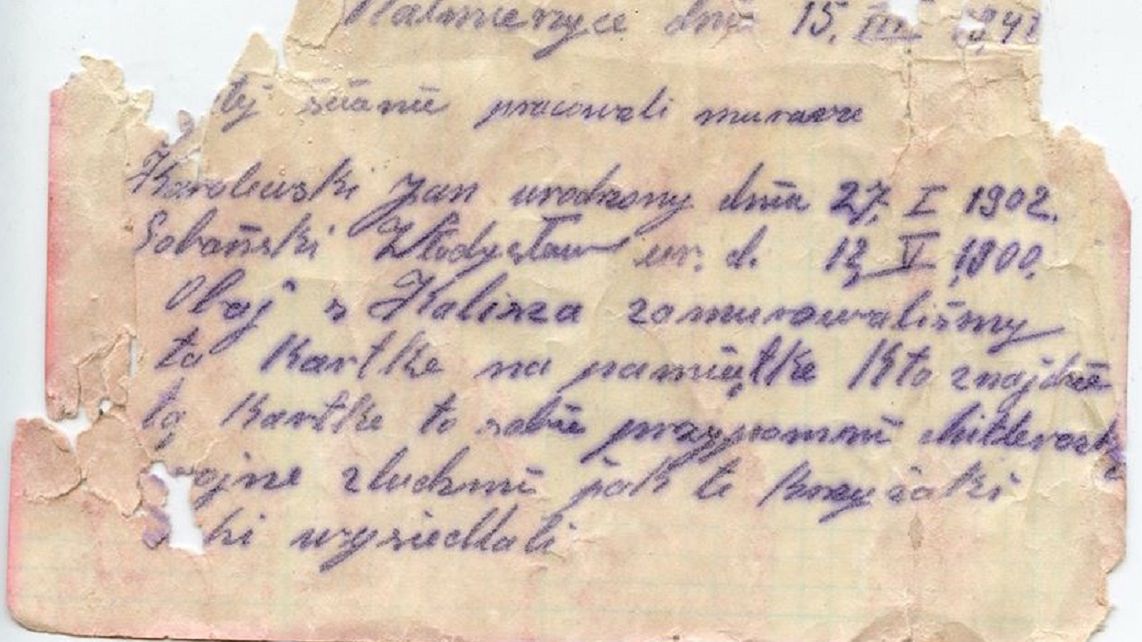 dnia 15. III 1941
tej ścianie pracowali murarze
Karolewski Jan urodzony dnia 27. I 1902.
Sobański Władysław ur. d. 12, V 1900.
Oboj z Kalisza zamurowaliśmy
tą Kartke na pamiętke Kto znajdzie
tą Kartke to sobie przypomni
zludzmi jak te krzyżaki
wysiedlali